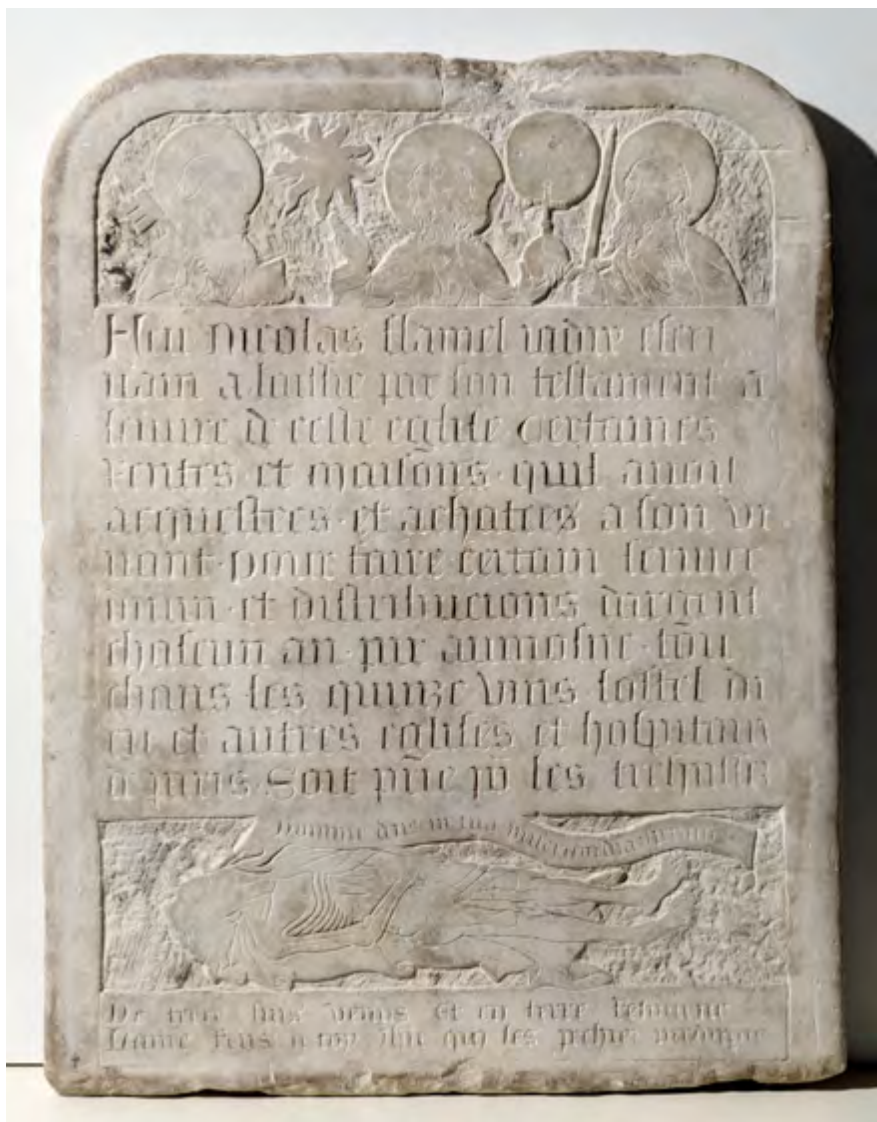 Feu nicolas flamel iadiz escri
uain a laissie par son testament a
leuure de ceste eglise certaines
rentes et maisons quil auoit
acquestees et achatees a son vi
uant pour faire certain seruice
diuin et distribucions dargent
chascun an par aumosne tou
chans les quinze vins lostel di
eu et autres eglises et hospitaux
de paris Soit prie po les trespassez
Domine deus in tua misericordia speraui
De terre suis venus et en terre retourne
Lame rens a toy qui les pechiez pardonne